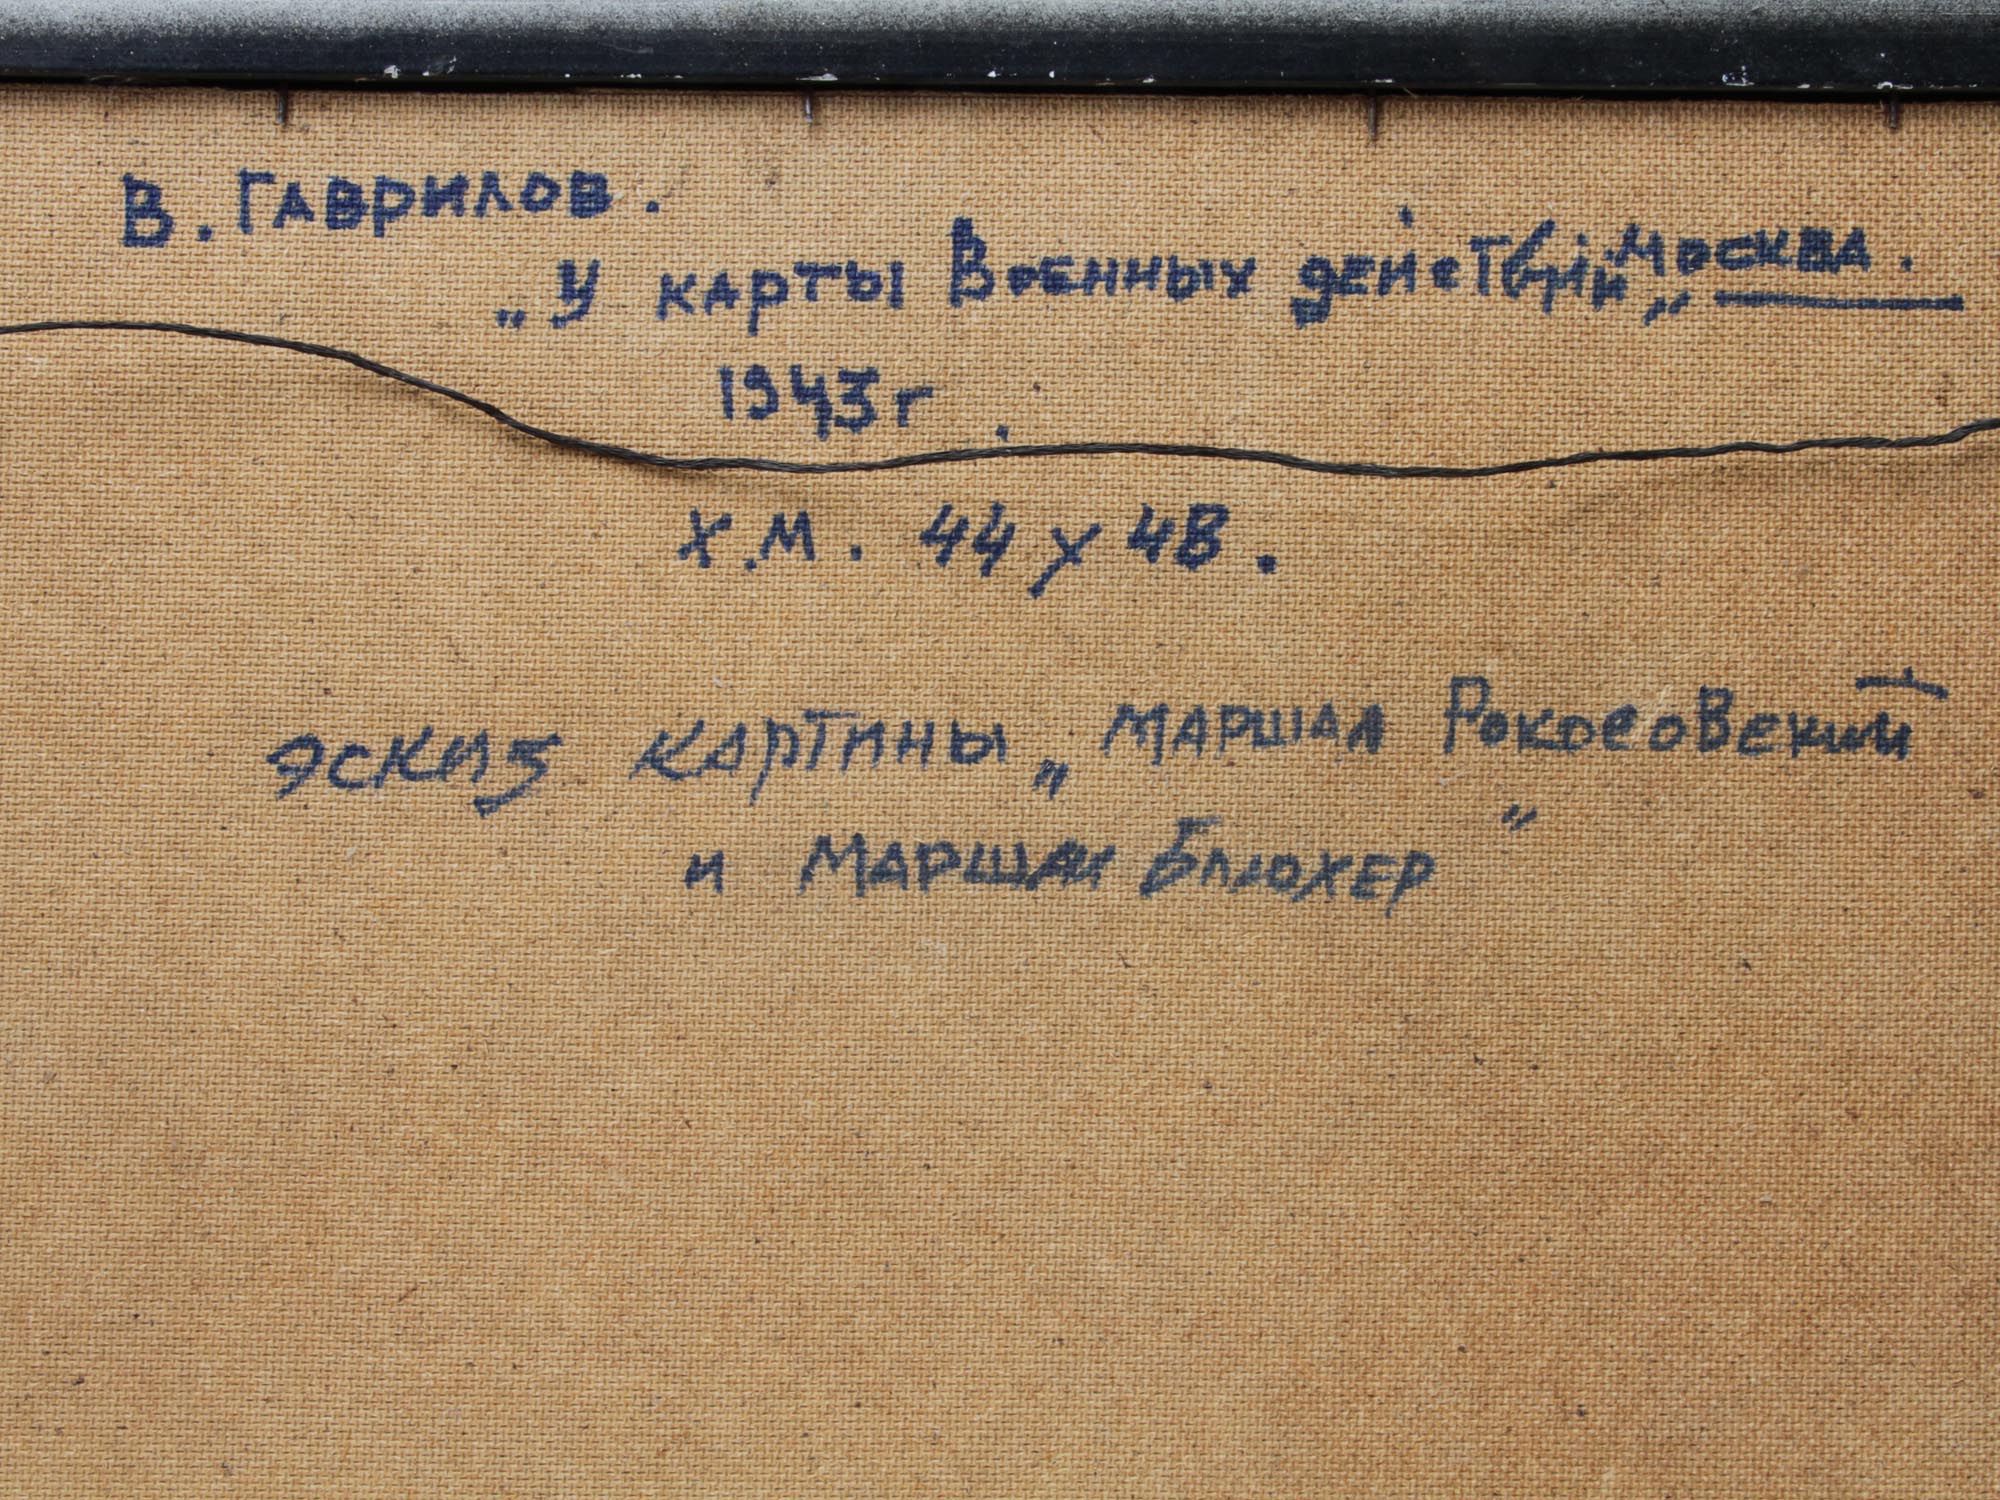 В. ГАВРИЛОВ.
„У КАРТЫ ВОЕННЫХ ДЕЙСТВИЙ„ МОСКВА.
1943 г.
Х.М. 44 х 48.
ЭСКИЗ КАРТИНЫ „МАРШАЛ РОКОСОВСКИЙ
И МАРШАЛ БЛЮХЕР"